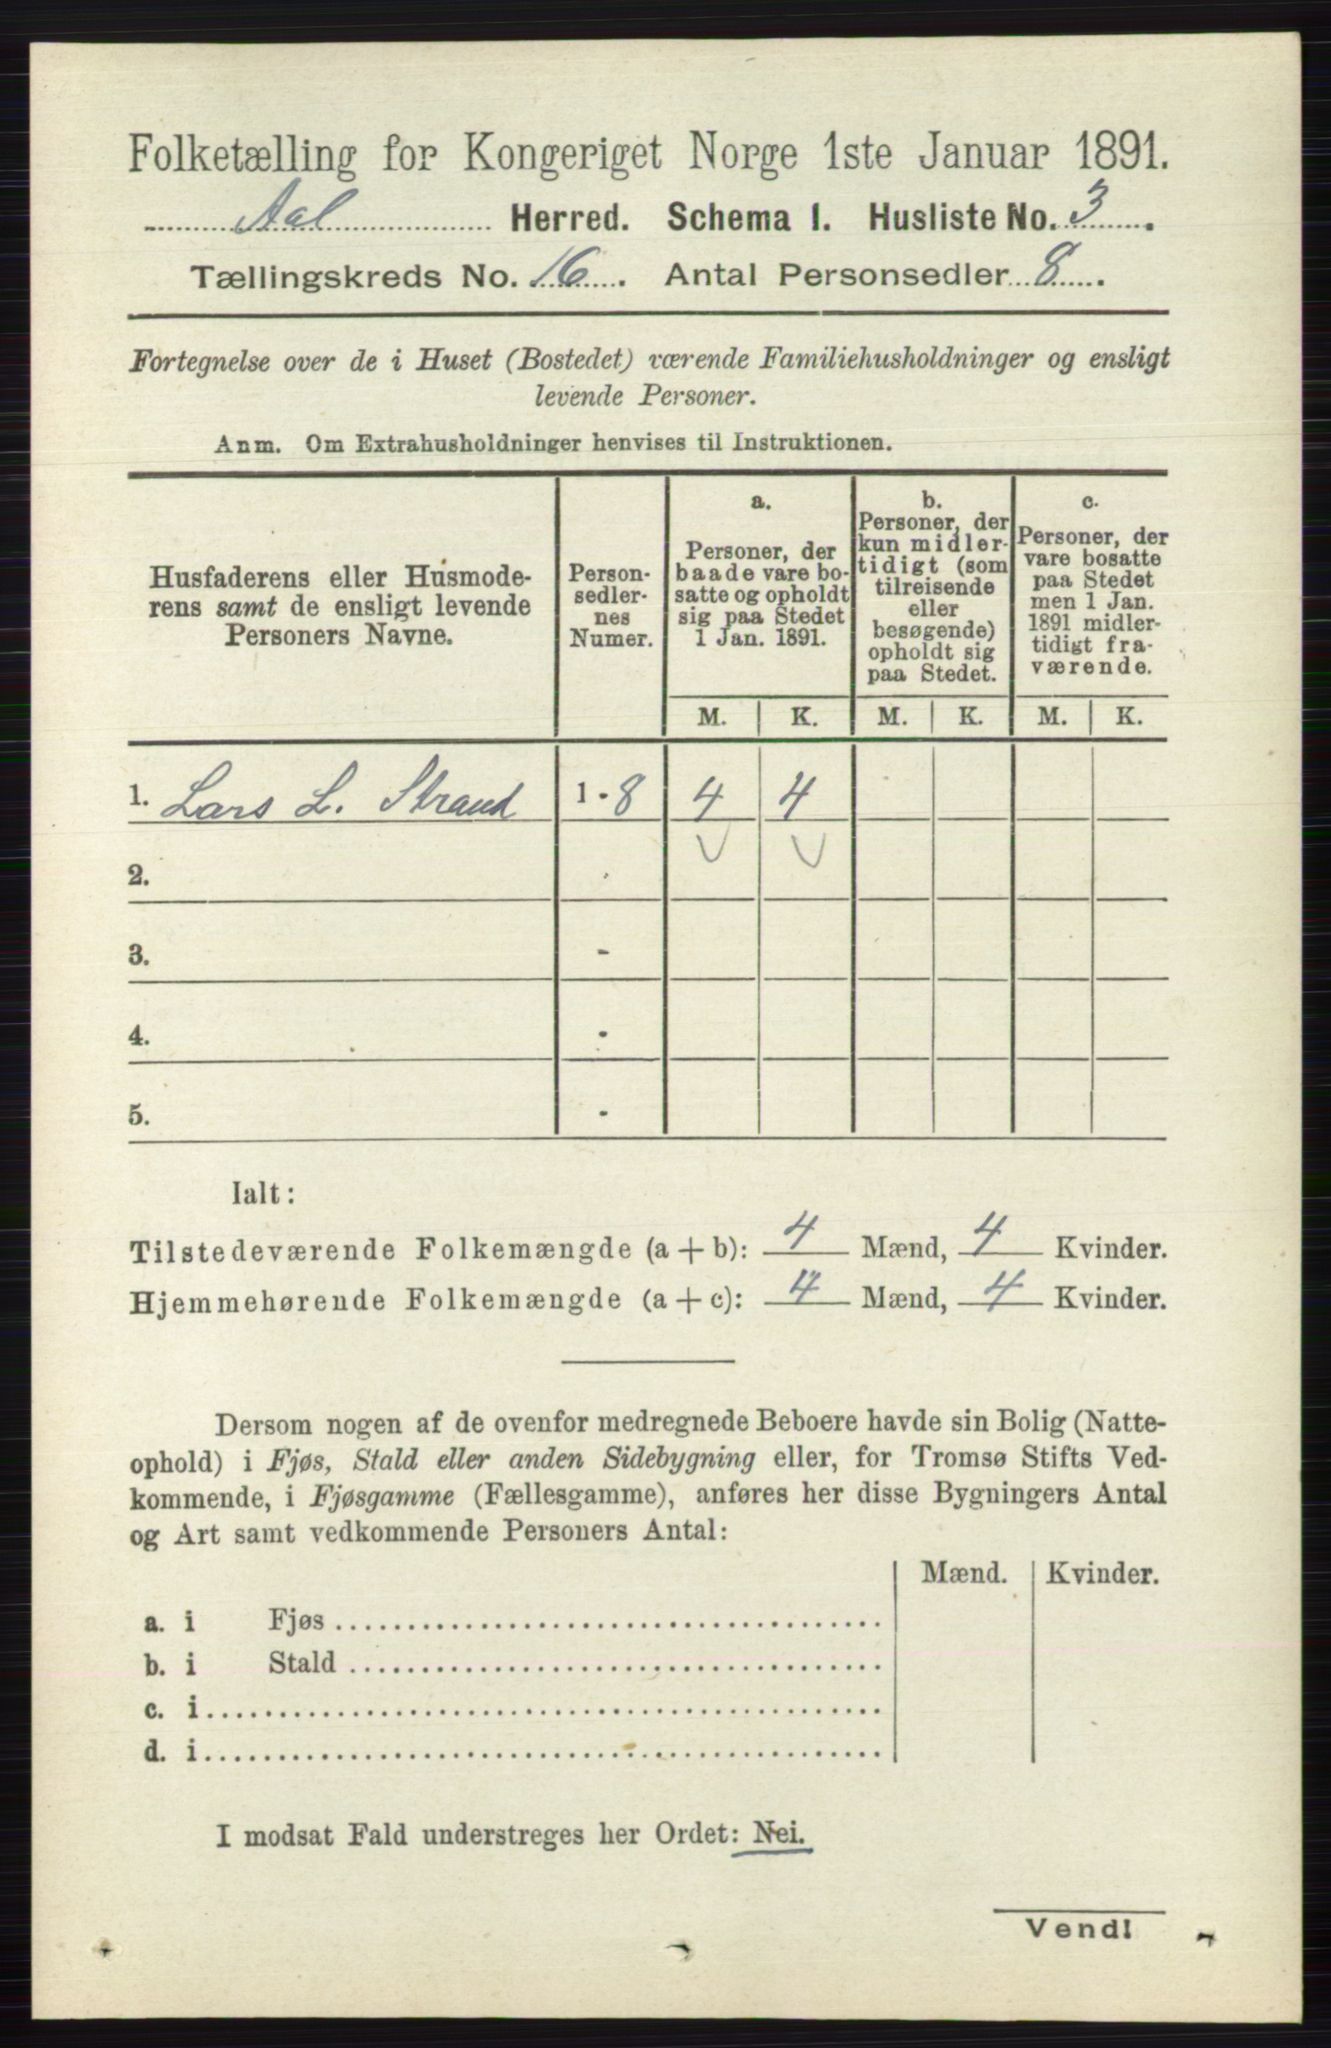 Folketælling for Kongeriget Norge 1ste Januar 1891.
Aal Herred. Schema 1. Husliste No. 3.
Tællingskreds No. 16. Antal Personsedler 8.
Fortegnelse over de i Huset (Bostedet) værende Familiehusholdninger og ensligt
levende Personer.
Anm. Om Extrahusholdninger henvises til Instruktionen.
Husfaderens eller Husmode-
rens samt de ensligt levende
Personers Navne.
Person-
sedler-
nes
Numer.
a.
Personer, der
baade vare bo-
satte og opholdt
sig paa Stedet
1 Jan. 1891.
b.
Personer, der
kun midler-
tidigt (som
tilreisende
eller
besøgende)
opholdt sig
paa Stedet.
c.
Personer, der
vare bosatte
paa Stedet
men 1 Jan.
1891 midler-
tidigt fra-
værende.
M. K. M. K. M. K.
1. Lars L. Strand 1 - 8 4 4
2. -
3. -
4. -
5. -
Ialt:
Tilstedeværende Folkemængde (a + b): 4 Mænd, 4 Kvinder.
Hjemmehørende Folkemængde (a + c): 4 Mænd, 4 Kvinder.
Dersom nogen af de ovenfor medregnede Beboere havde sin Bolig (Natte-
ophold) i Fjøs, Stald eller anden Sidebygning eller, for Tromsø Stifts Ved-
kommende, i Fjøsgamme (Fællesgamme), anføres her disse Bygningers Antal
og Art samt vedkommende Personers Antal:
Mænd. Kvinder.
a. i Fjøs
b. i Stald
c. i
d. i
I modsat Fald understreges her Ordet: Nei.
Vend!